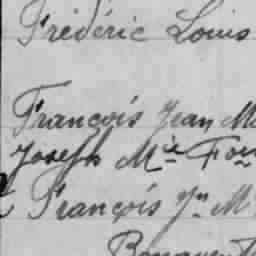 Frédéric Louis
François Jean M
Joseph Mie Fo
François Jn M